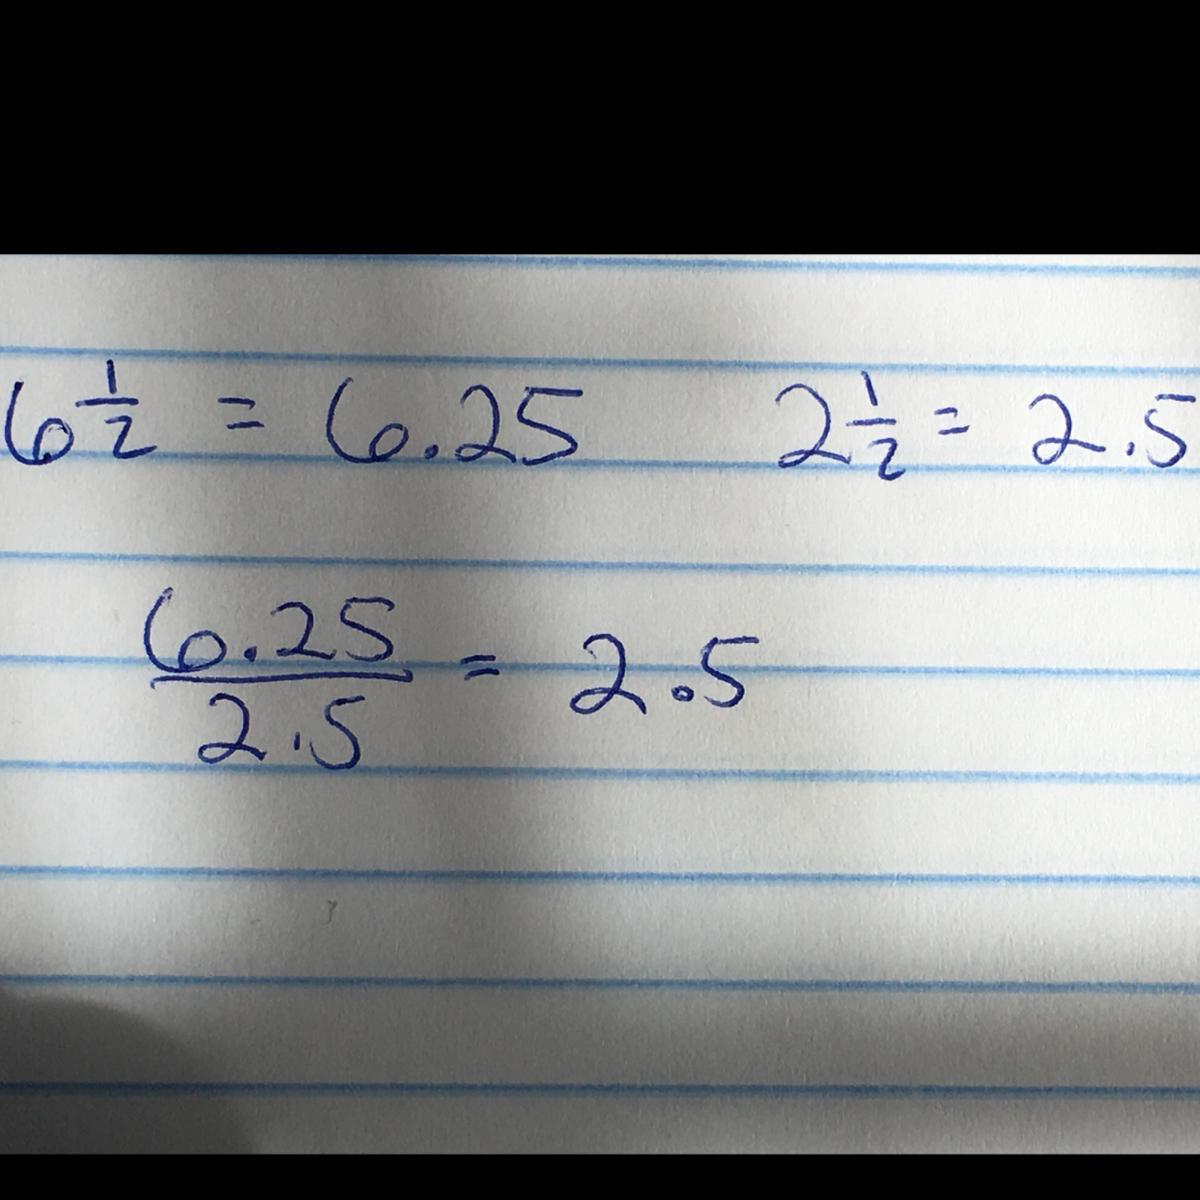 6 1/2 = 6.25 2 1/2 = 2.5
6.25/2.5 = 2.5